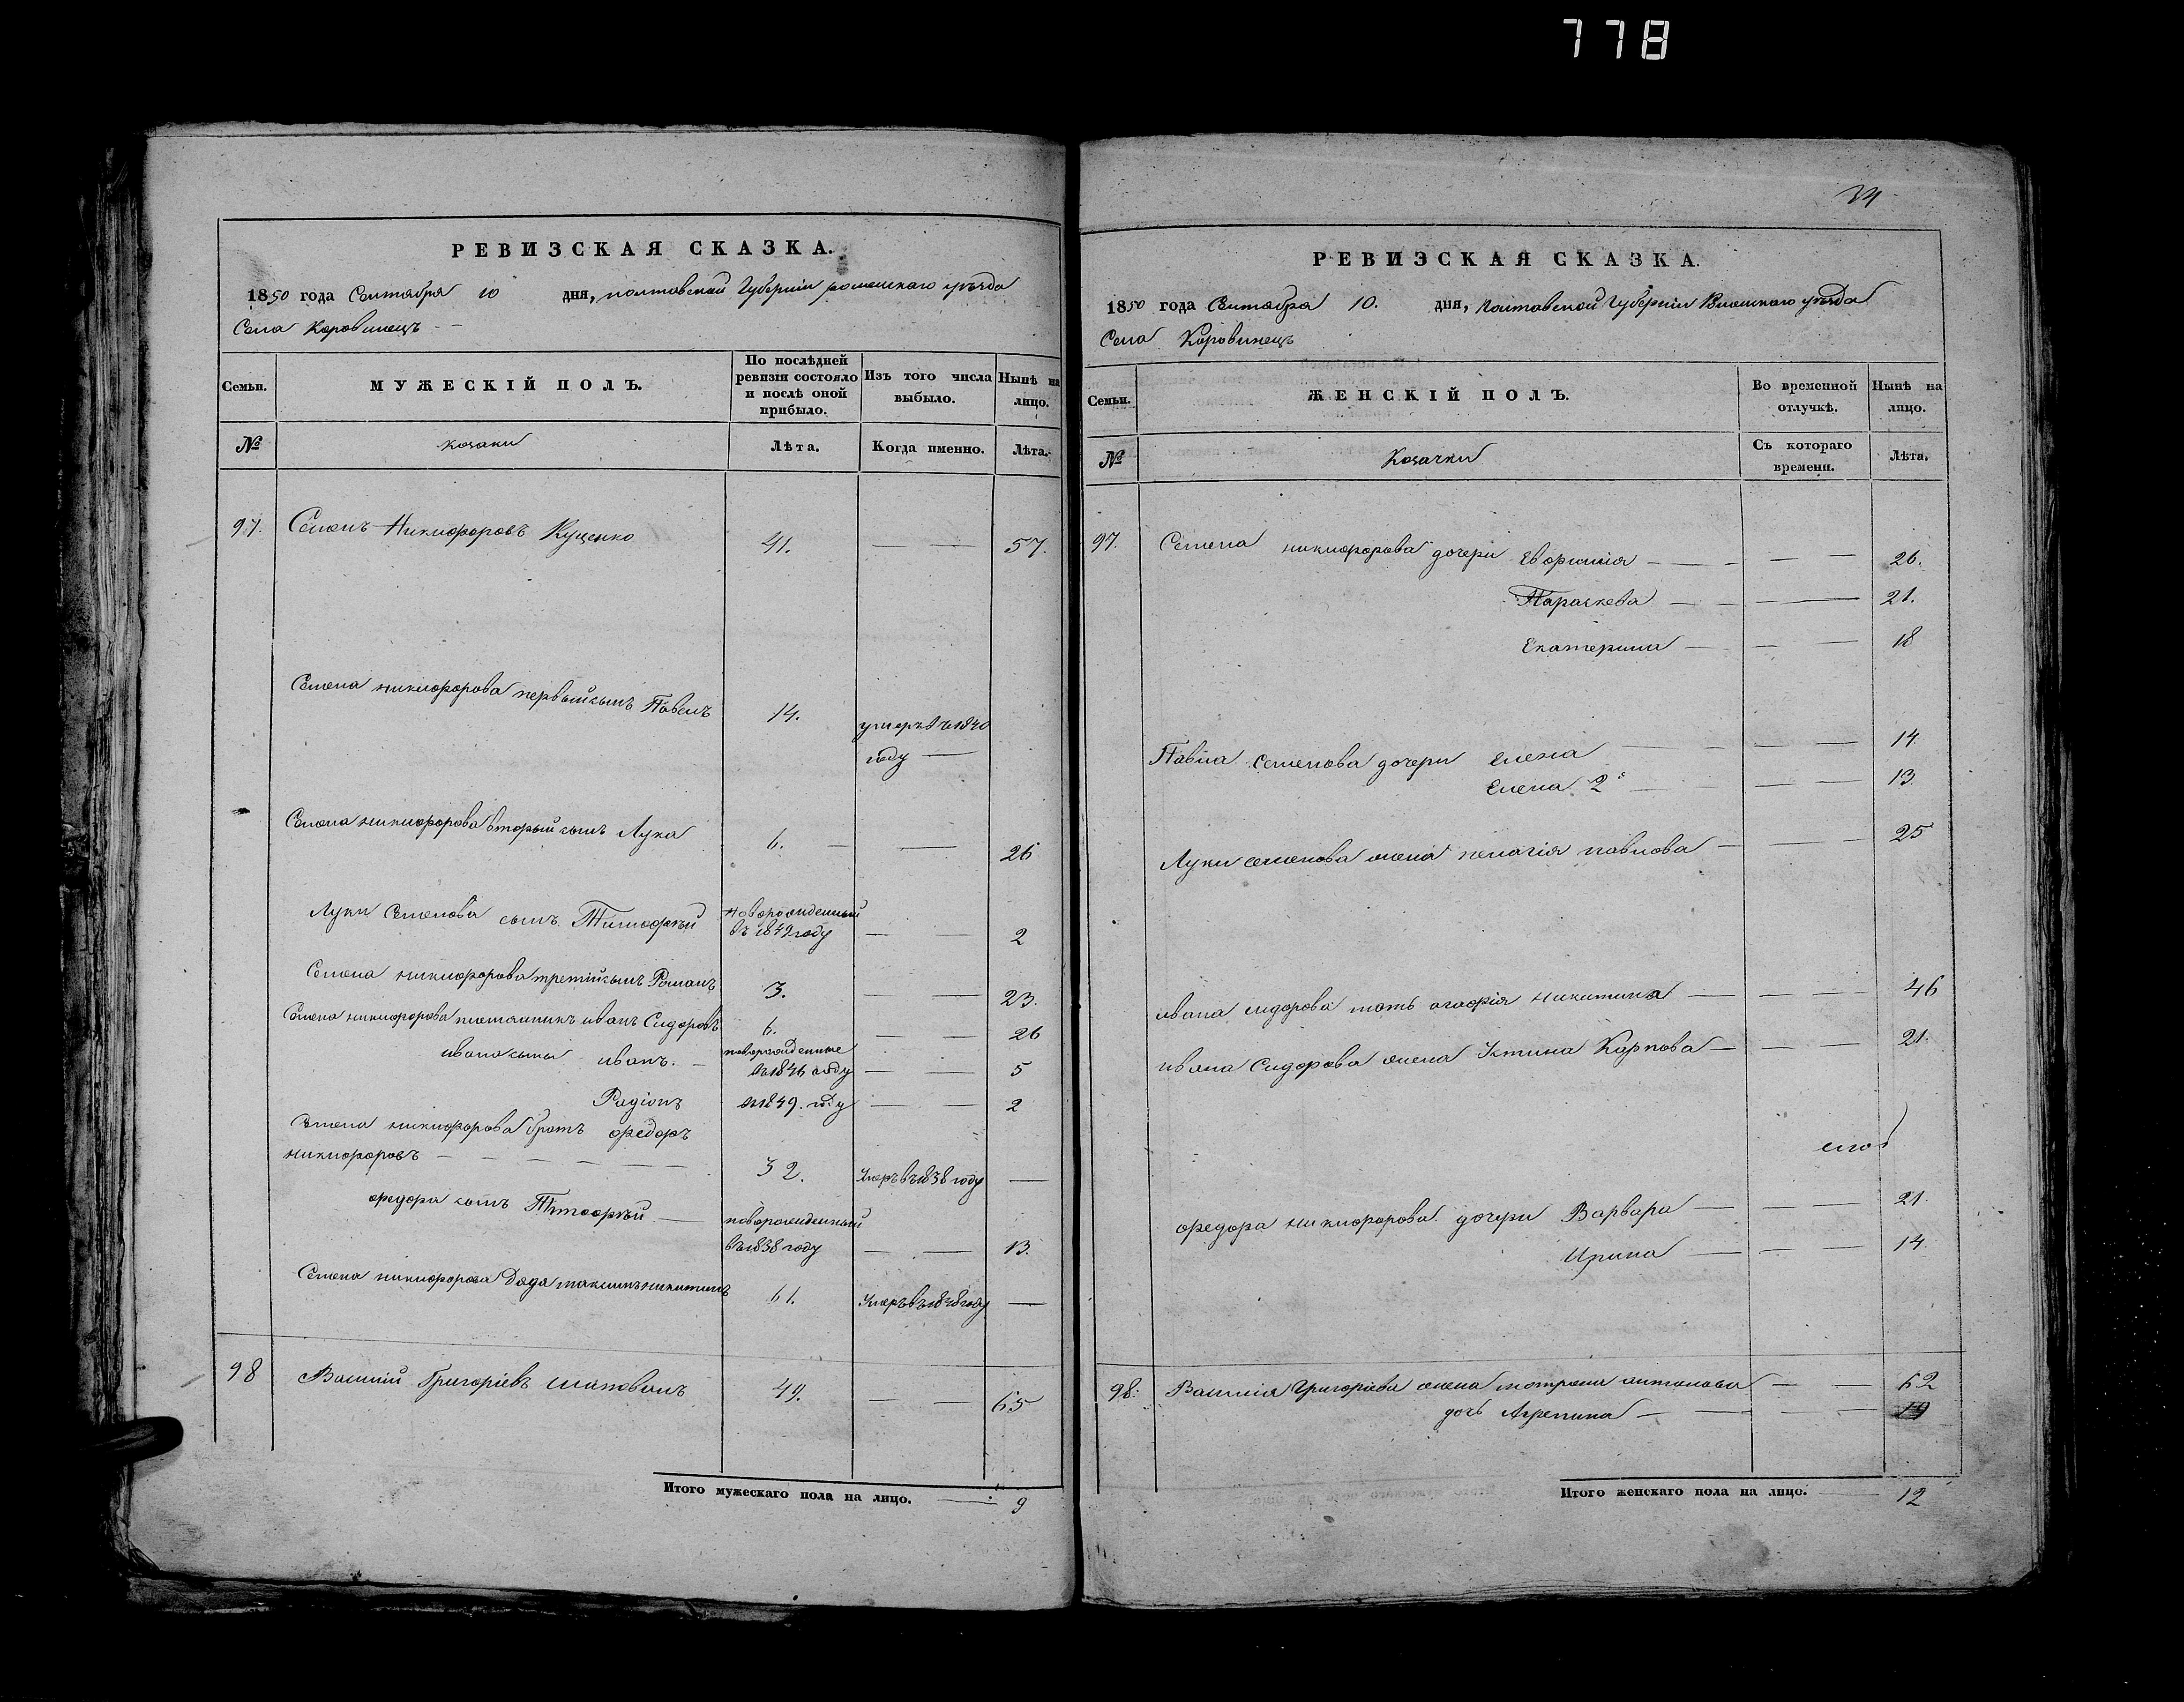 778
РЕВИЗСКАЯ СКАЗКА.
1850 года Сентября 10 дня, полтавской Губерніи роменскаго уѣзда
Села Коровинецъ
Семьи. МУЖЕСКІЙ ПОЛЪ. По послѣдней ревизіи состояло и послѣ оной прибыло. Изъ того числа выбыло. Нынѣ на лицо.
№ козаки Лѣта. Когда именно. Лѣта.
97. Семенъ Никифоровъ Куценко 41. 57.
Семена никифорова первый сынъ Павелъ 14. умеръ въ 1840
году
Семена никифорова вторый сынъ Лука 6. 26
Луки Семенова сынъ Тимофѣй новорожденный
въ 1849 году 2
Семена никифорова третій сынъ Романъ 3. 23.
Семена никифорова племянникъ иванъ Сидоровъ 6. 26
ивана сыны иванъ. новорожденные
въ 1846 году 5
Радіонъ въ 1849. году 2
Семена никифорова братъ федоръ
никифоровъ 32. Умеръ въ 1838 году
федора сынъ Тимофѣй новорожденный
въ 1838 году 13.
Семена никифорова дядя максимъ никитинъ 61. Умеръ въ 1848 году
98 Василій Григоріевъ шаповалъ 49. 65
Итого мужескаго пола на лицо. 9
34
РЕВИЗСКАЯ СКАЗКА.
1850 года Сентября 10. дня, полтавской Губерніи уѣзда
Села Коровинецъ
Семьи. ЖЕНСКІЙ ПОЛЪ. Во временной отлучкѣ. Нынѣ на лицо.
№ Козачки Съ котораго времени. Лѣта.
97. Семена никифорова дочери Евфимія 26.
Параскева 21.
Екатерина 18
Павла Семенова дочери Елена 14.
Елена 2 13.
Луки семенова жена пелагія павлова 25
ивана сидорова мать агафія никитина 46
ивана Сидорова жена Устина Карпова 21.
федора никифорова дочери Варвара 21.
Ирина 14.
98. Василія Григоріева жена мотрона антонова 62
дочь Агрепина 19
Итого женскаго пола на лицо. 12